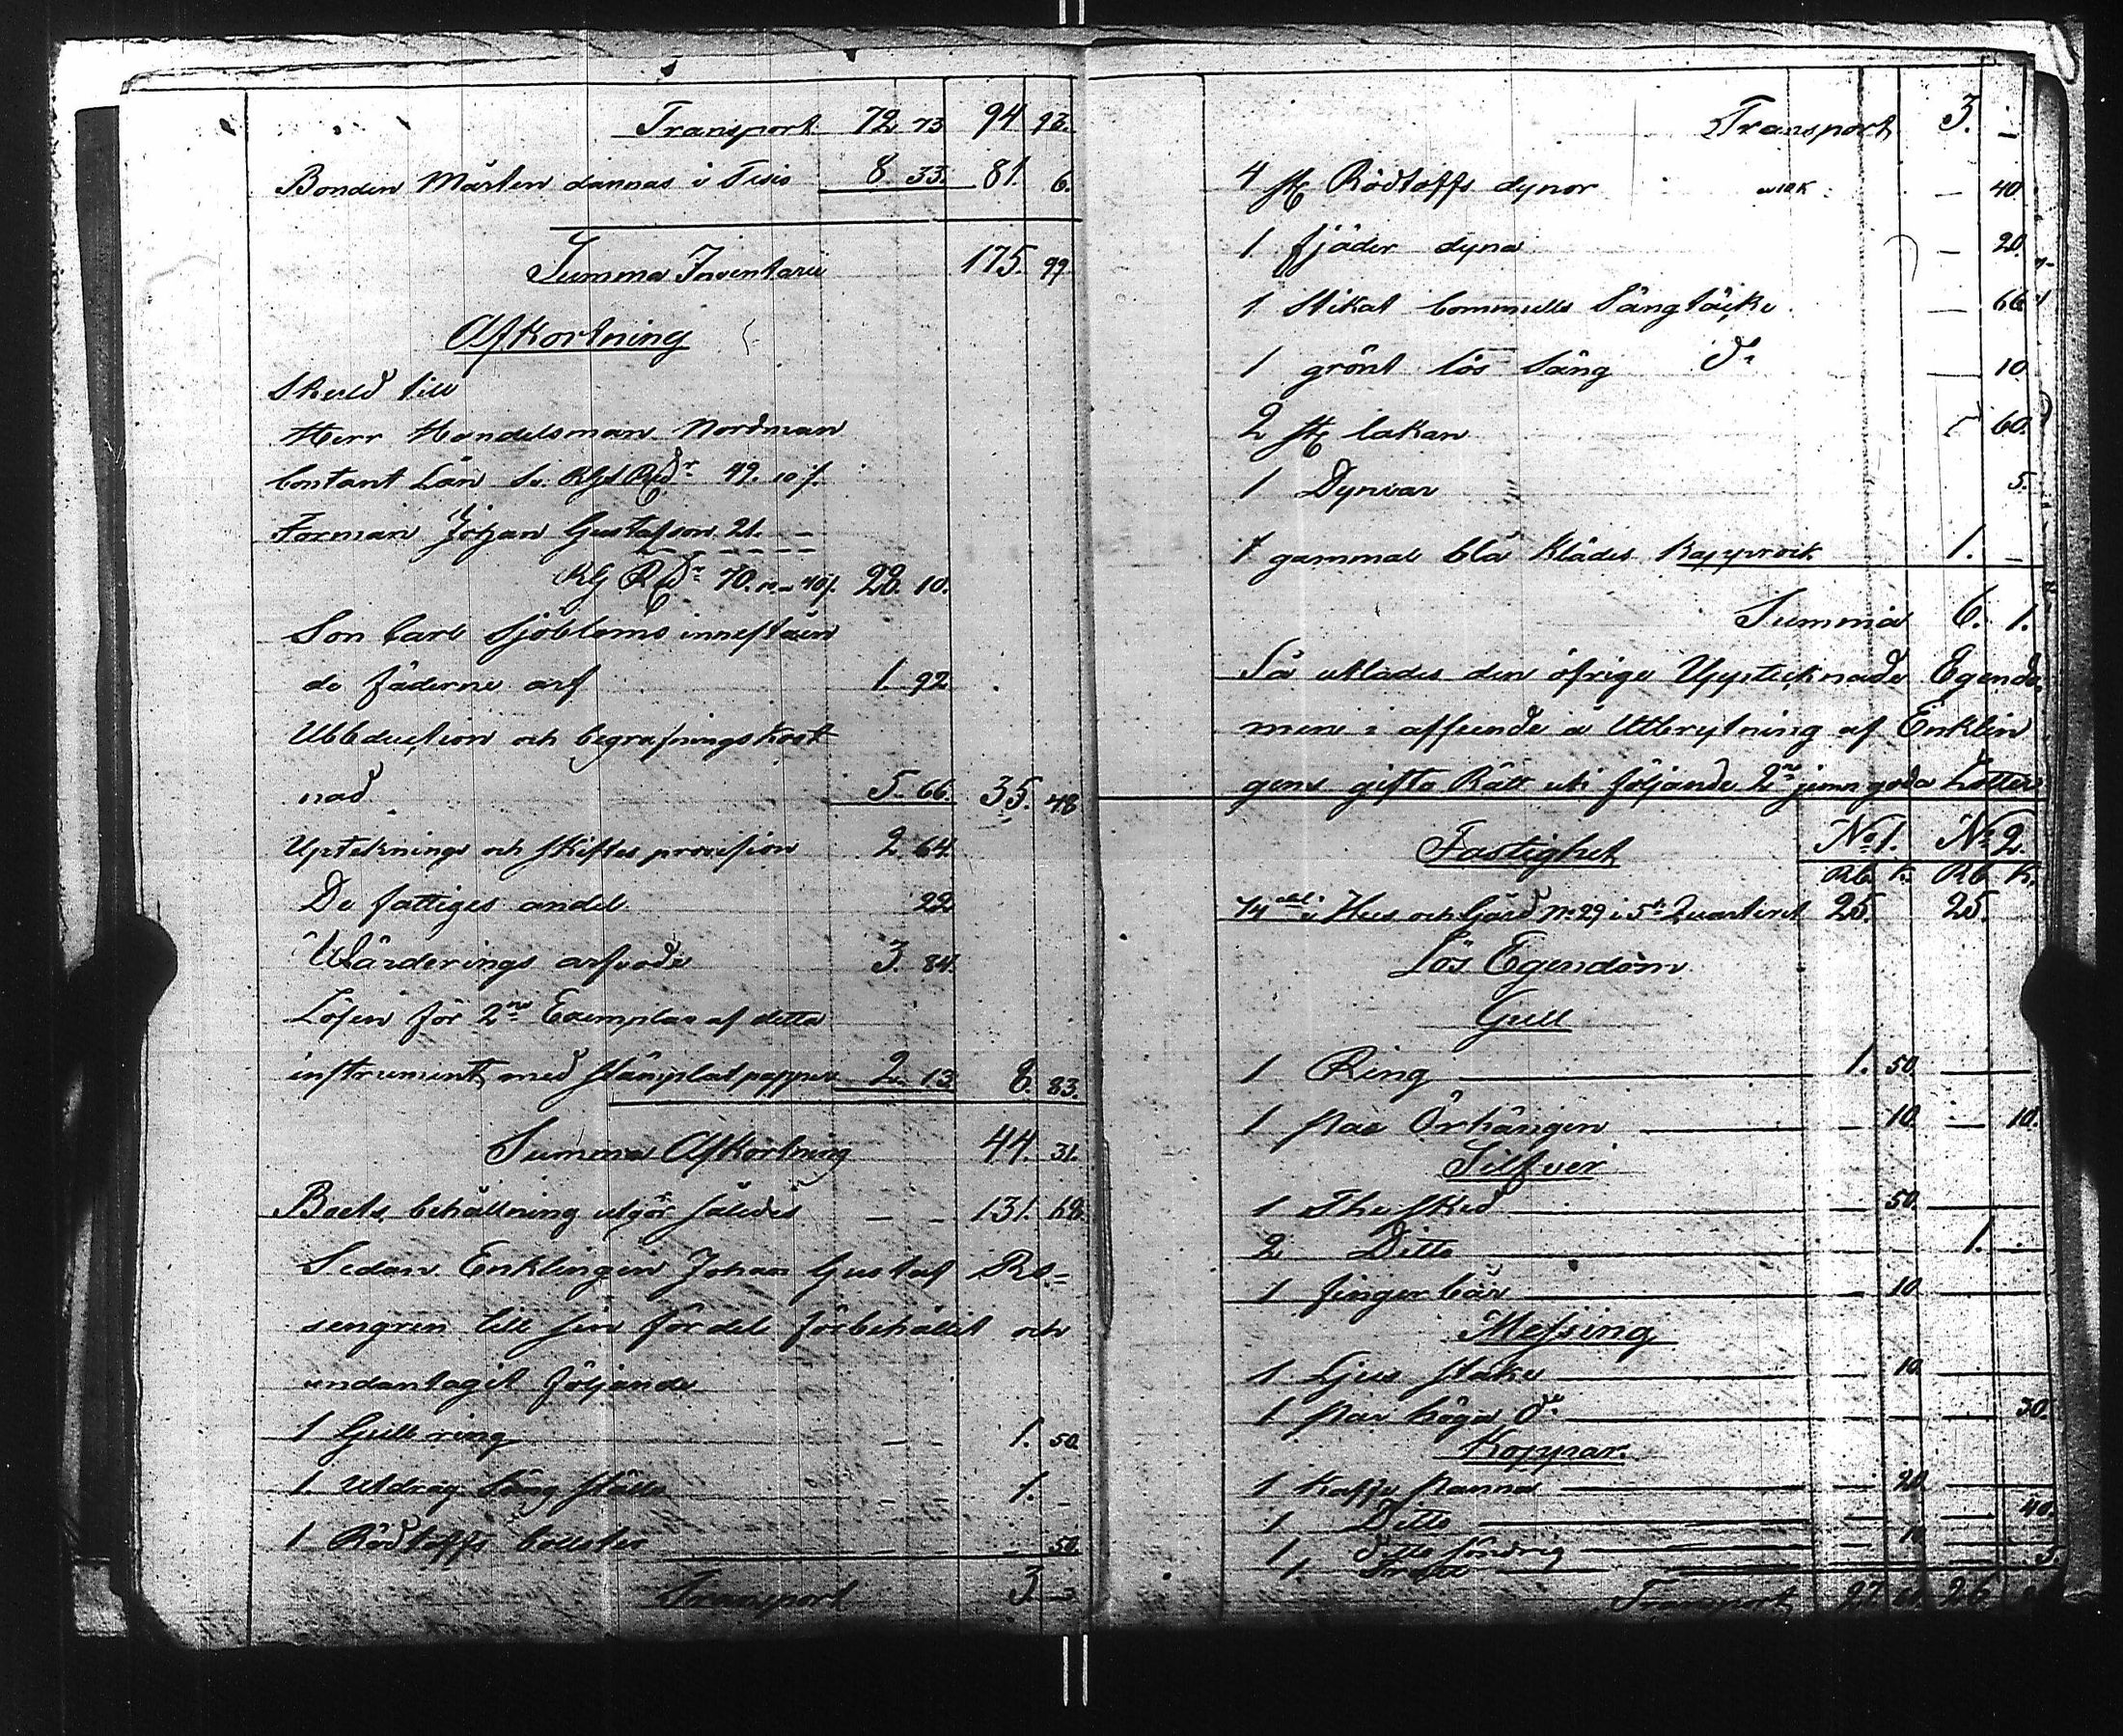 Transport 72 73 94 93.
Bonden Mårten dannas i Tisis 8 33. 81. 6.
Summa Inventarii 175. 99
Afkortning
Skuld till
Herr Handelsman Nordman
Contant Lån 49. 10
Forman Johan Gustafson 21. —
70. 28. 10.
Son Carl Sjöbloms inneståen
de fäderne arf 1. 92
Obbduction och begrafnings kost
nad 5. 66. 35. 48
Upteknings och skiftes provision 2 64.
De fattiges andel 22
Wärderings arfvode 3. 84.
Lösen för 2ne Exemplar af detta
instrument med stämplat papper 2. 13. 8. 83.
Summa Afkortning 44. 31.
Boets behållning utgör således — — 131. 68.
Sedan Enklingen Johan Gustaf Ro=
sengren till sin fördel förbehållit och
undantagit följande
1 Gull ring — — 1. 50
1. Utdrag säng ställe — — 1. —
1 Rödtoffs bolster — — — 50.
Transport 3. —
Transport 3. —
4 st Rödtoffs dynor — 40.
1 fjäder dyna — 20.
1 Stikat bommulls Sängtäcke — 66
1 grönt lös Säng do — 10
2 st lakan — 60.
1 Dynvar 5.
1 gammal blå klädes kapprock 1. —
Summa 6. 1.
Så utlades den öfrige Upptecknade Egendo
men i affseende å Utbrytning af Enklin
gens gifto Rätt uti följande 2ne jemn goda Lotter
Fastighet No 1. No 2.
Rb. K. Rb. K.
1/4 del i Hus och Gård No 29 i 5te Quarteret 25. 25.
Lös Egendom
Gull
1 Ring 1. 50
1 par Örhängen — 10. — 10.
Silfver
1 The sked 50
2 Ditto 1. .
1 fingerbår — 10
Messing
1 Ljus stake — 10
1 par höga do 30.
Koppar
1 Kaffe panna 20
1 Ditto 40.
1 do söndrig
1. Tratt 5.
Transport 27. 26